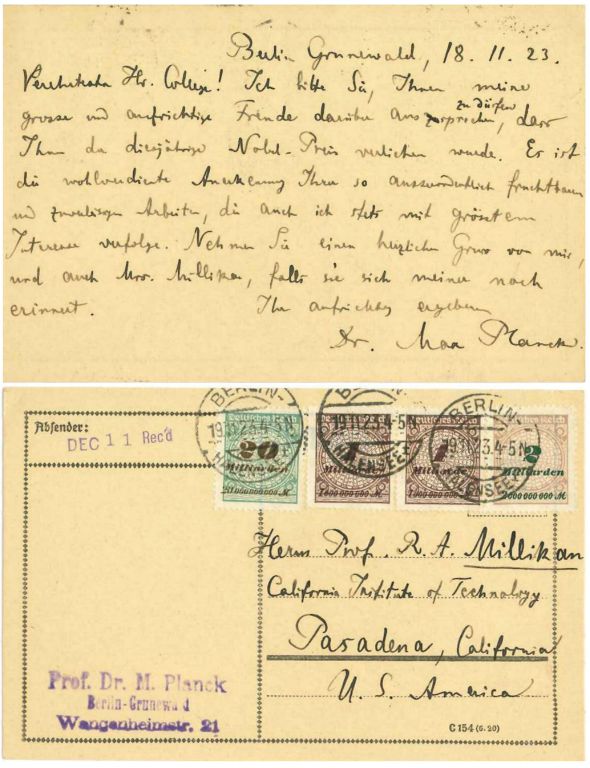 Berlin Grunewald, 18. 11. 23.
Verehrtester Hr. College! Ich bitte Sie, Ihnen meine
grosse und aufrichtige Freude darüber aussprechen, dass
zu dürfen
Ihnen der diesjährige Nobel-Preis verliehen wurde. Es ist
die wohlverdiente Anerkennung Ihrer so ausserordentlich fruchtbaren
und zuverlässigen Arbeiten, die auch ich stets mit grösstem
Interesse verfolge. Nehmen Sie einen herzlichen Gruss von mir,
und auch Mrs. Millikan, falls sie sich meiner noch
erinnert. Ihr aufrichtig ergebener
Dr. Max Planck.
BERLIN-
19.11.23.4-5N
HALENSEE
BERLIN-
19.11.23.4-5N
HALENSEE
BERLIN-
19.11.23.4-5N
HALENSEE
Deutsches Reich
20
Milliarden
Deutsches Reich
1
Milliarde
1000000000 M
Deutsches Reich
1
Milliarde
1000000000 M
Deutsches Reich
2
Milliarden
2000000000 M
Absender:
DEC 11 Rec'd
Herrn Prof. R. A. Millikan
California Institute of Technology
Pasadena, California
U. S. America
Prof. Dr. M. Planck
Berlin-Grunewald
Wangenheimstr. 21
C 154 (6. 20)